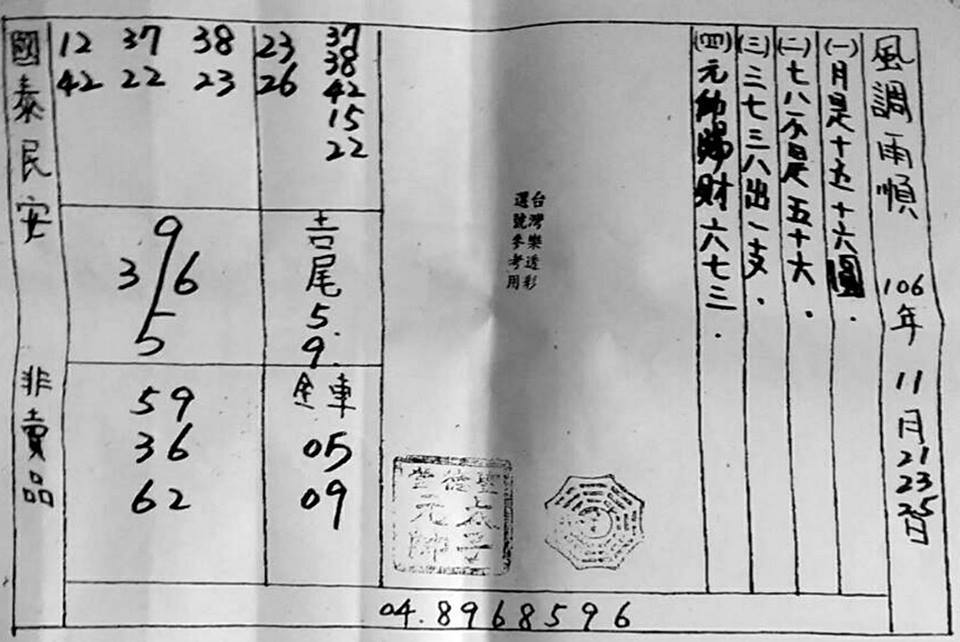 風調雨順 106年 11月21 23 25日
(一)月是十五十六圓.
(二)七八不是五十六.
(三)三七三八出一支.
(四)元帥賜財六七三.
台灣樂透彩
選號參考用
聖德堂
太子
元帥
37
38
42
15
22
23
26
12 37 38
42 22 23
吉尾5.9.
9
3 6
5
全車
05
09
59
36
62
國泰民安 非賣品
04.8968596